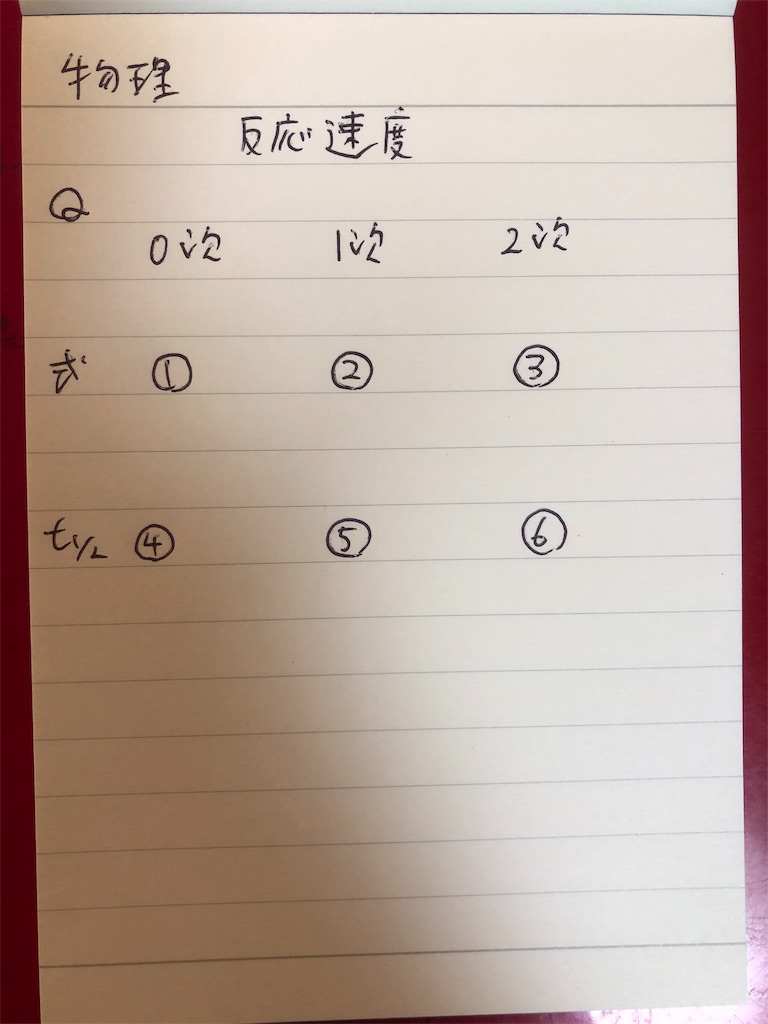 物理
反応速度
Q
0次 1次 2次
式 ① ② ③
t1/2 ④ ⑤ ⑥